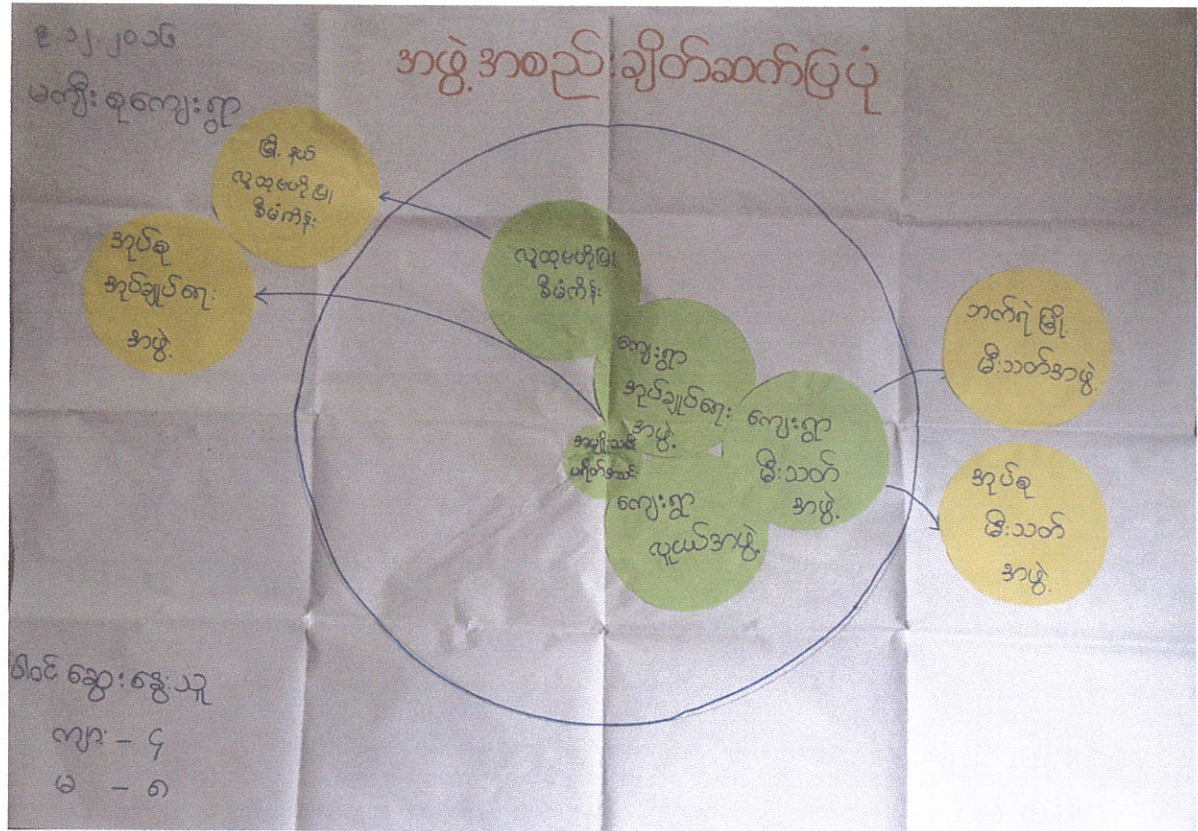 ၉.၁၂.၂၀၁၆
မကျီးစုကျေးရွာ
အဖွဲ့အစည်းချိတ်ဆက်ပြပုံ
မြို့နယ်
လူထုဗဟိုပြု
စီမံကိန်း
အုပ်စု
အုပ်ချုပ်ရေး
အဖွဲ့
လူထုဗဟိုပြု
စီမံကိန်း
ကျေးရွာ
အုပ်ချုပ်ရေး
အဖွဲ့
အမျိုးသမီး
ပရိတ်အသင်း
ကျေးရွာ
လူငယ်အဖွဲ့
ကျေးရွာ
မီးသတ်
အဖွဲ့
ဘက်ရဲမြို့
မီးသတ်အဖွဲ့
အုပ်စု
မီးသတ်
အဖွဲ့
ပါဝင်ဆွေးနွေးသူ
ကျား - ၄
မ - ၈